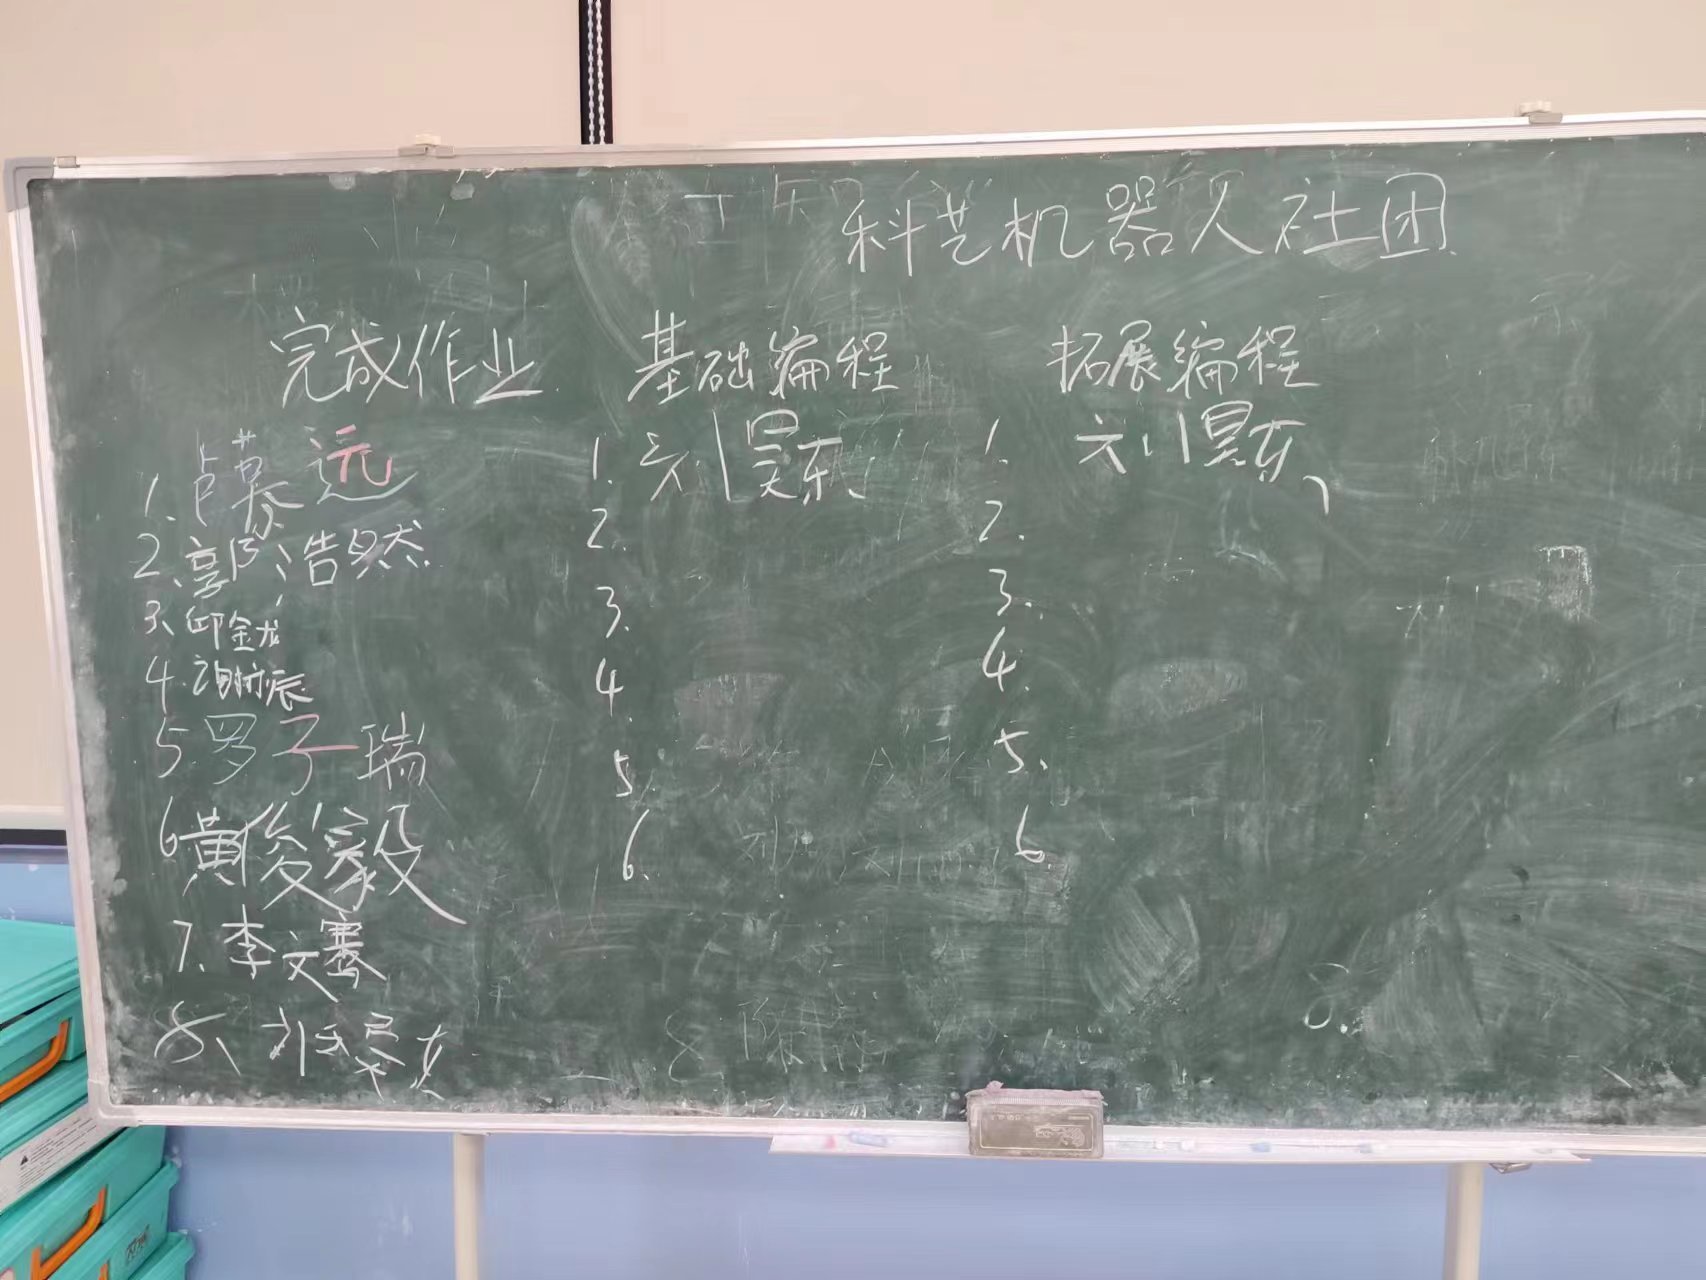 科艺机器人社团
完成作业 基础编程 拓展编程
1. 卢慕远
2、郭浩然
3、邱金龙
4. 谢沛辰
5. 罗子瑞
6 黄俊毅
7. 李文骞
8、
1. 刘昊东
2.
3.
4.
5.
6.
1. 刘昊东
2.
3.
4.
5.
6.